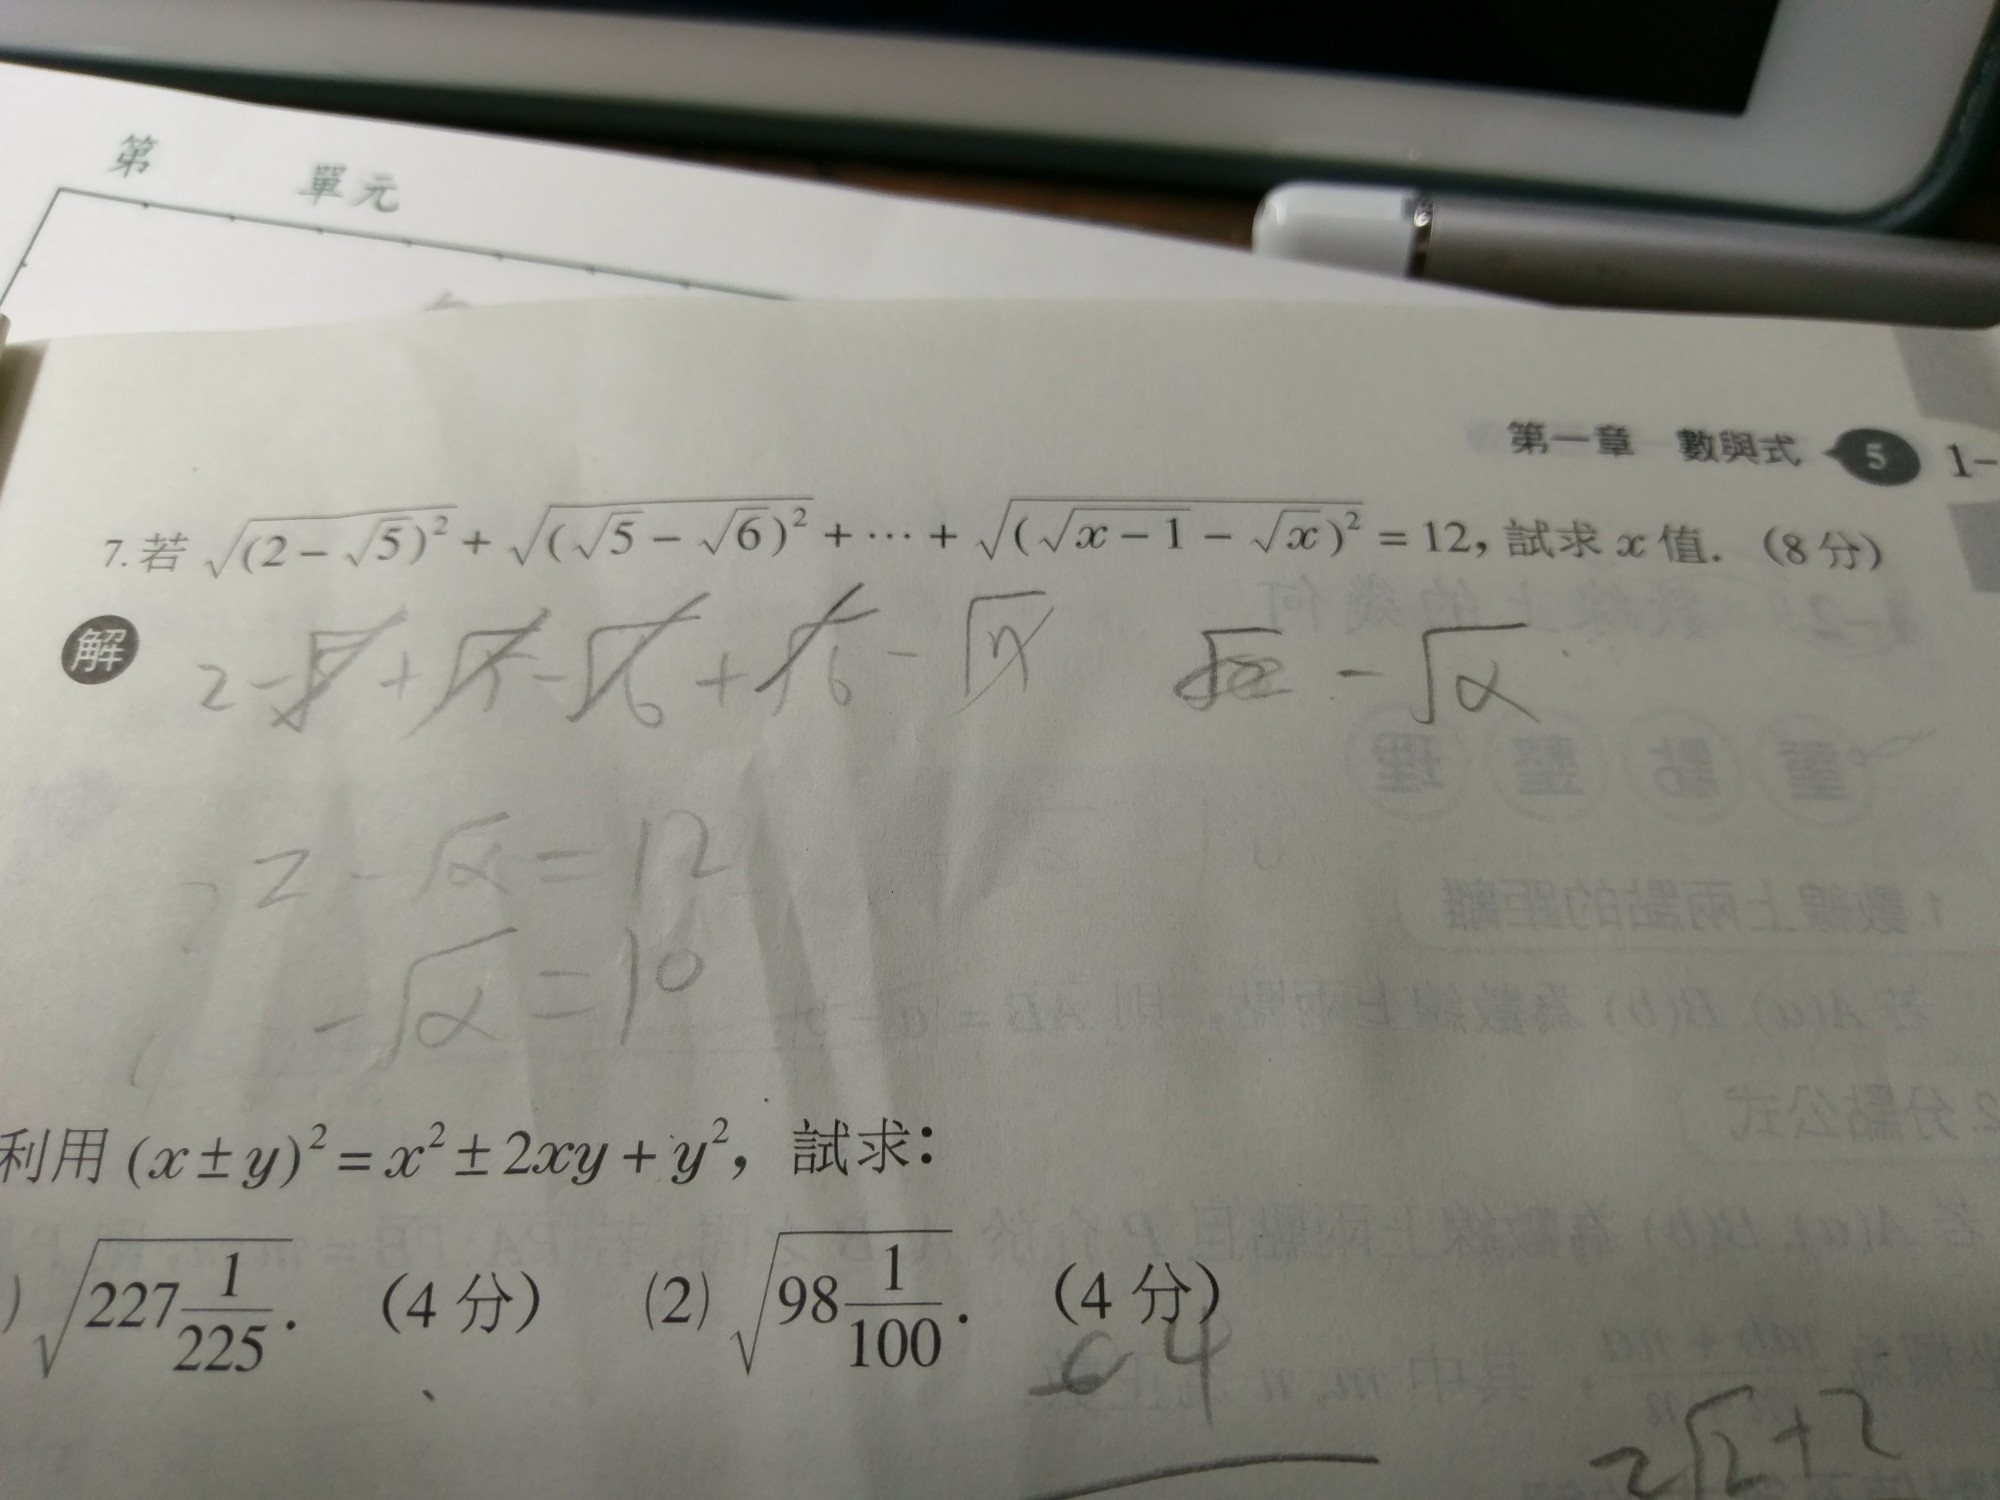 第 單元
第一章 數與式 5 1-
7. 若 √(2-√5)² + √(√5-√6)² + ⋯ + √(√x-1 - √x)² = 12, 試求 x 值. (8 分)
解
2 - √5 + √5 - √6 + √6 - √7 - √x
2 - √x = 12
- √x = 10
利用 (x ± y)² = x² ± 2xy + y², 試求：
) √227 1/225. (4 分) (2) √98 1/100. (4 分)
64
2√2+2